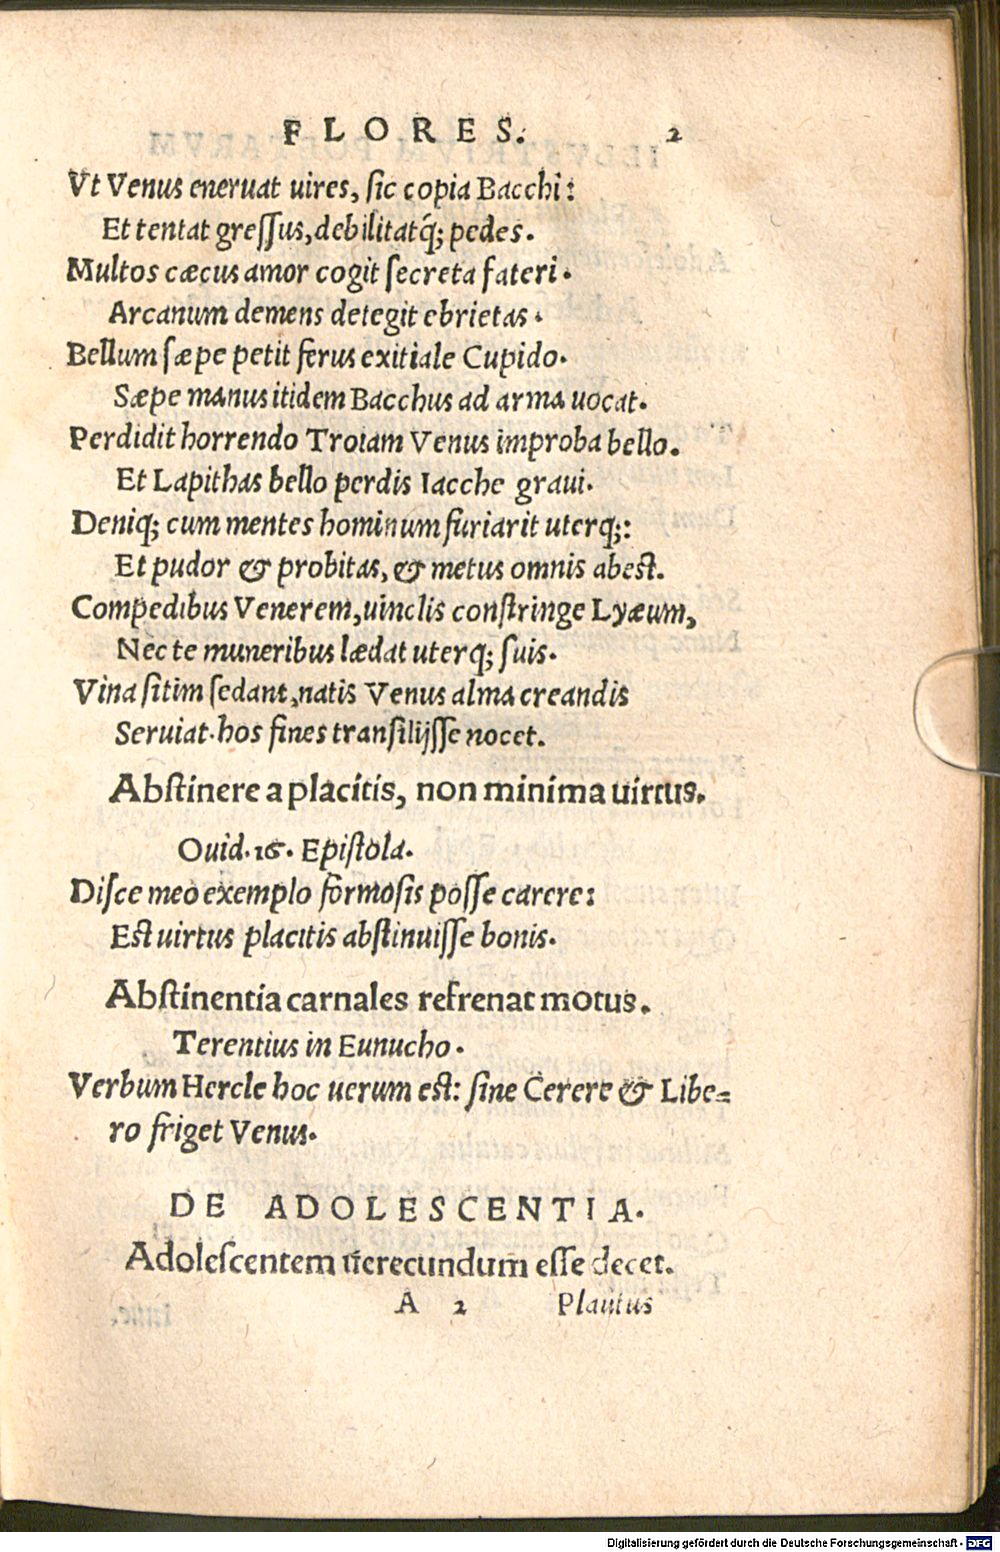 FLORES. 2
Vt Venus eneruat uires, sic copia Bacchi:
Et tentat gressus, debilitatq́; pedes.
Multos cæcus amor cogit secreta fateri.
Arcanum demens detegit ebrietas.
Bellum sæpe petit ferus exitiale Cupido.
Sæpe manus itidem Bacchus ad arma uocat.
Perdidit horrendo Troiam Venus improba bello.
Et Lapithas bello perdis Iacche graui.
Deniq; cum mentes hominum furiarit uterq;:
Et pudor & probitas, & metus omnis abest.
Compedibus Venerem, uinclis constringe Lyæum,
Nec te muneribus lædat uterq; suis.
Vina sitim sedant, natis Venus alma creandis
Seruiat. hos fines transilijsse nocet.
Abstinere a placitis, non minima uirtus.
Ouid. 16. Epistola.
Disce meo exemplo formosis posse carere:
Est uirtus placitis abstinuisse bonis.
Abstinentia carnales refrenat motus.
Terentius in Eunucho.
Verbum Hercle hoc uerum est: sine Cerere & Libe=
ro friget Venus.
DE ADOLESCENTIA.
Adolescentem uerecundum esse decet.
A 2 Plautus
Digitalisierung gefördert durch die Deutsche Forschungsgemeinschaft - DFG